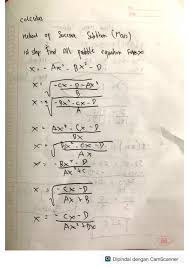 calculus
Method of Success
1st step find All possible equation
x = - Ax³ - Bx² - D
x = √ -Cx - D - Ax³ / B
x = ³√ -Bx² - Cx - D / A
x = - Ax³ - Cx - D / Bx
x = √ -Bx² - Cx - D / Ax
x = - Bx² - D / Ax² + C
x = √ -Cx - D / Ax + B
x = - Cx - D / Ax² + Bx
Dipindai dengan CamScanner